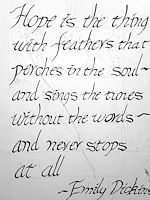 Hope is the thing
with feathers that
perches in the soul-
and sings the tunes
without the words-
and never stops
at all
~Emily Dickins